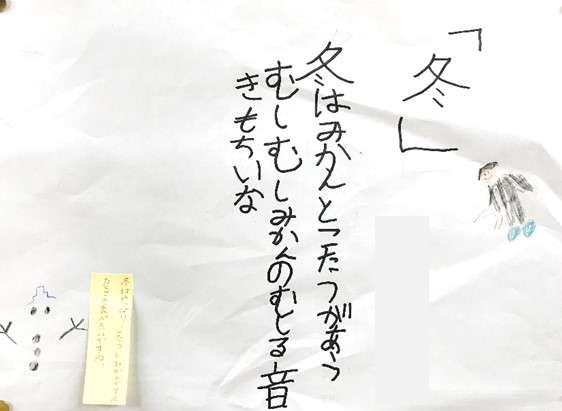 「冬」
冬はみかんとこたつがあう
むしむしみかんのむどる音
きもちいな
冬はやっぱりこたつとみかんですね
たくさん食べたいですね。